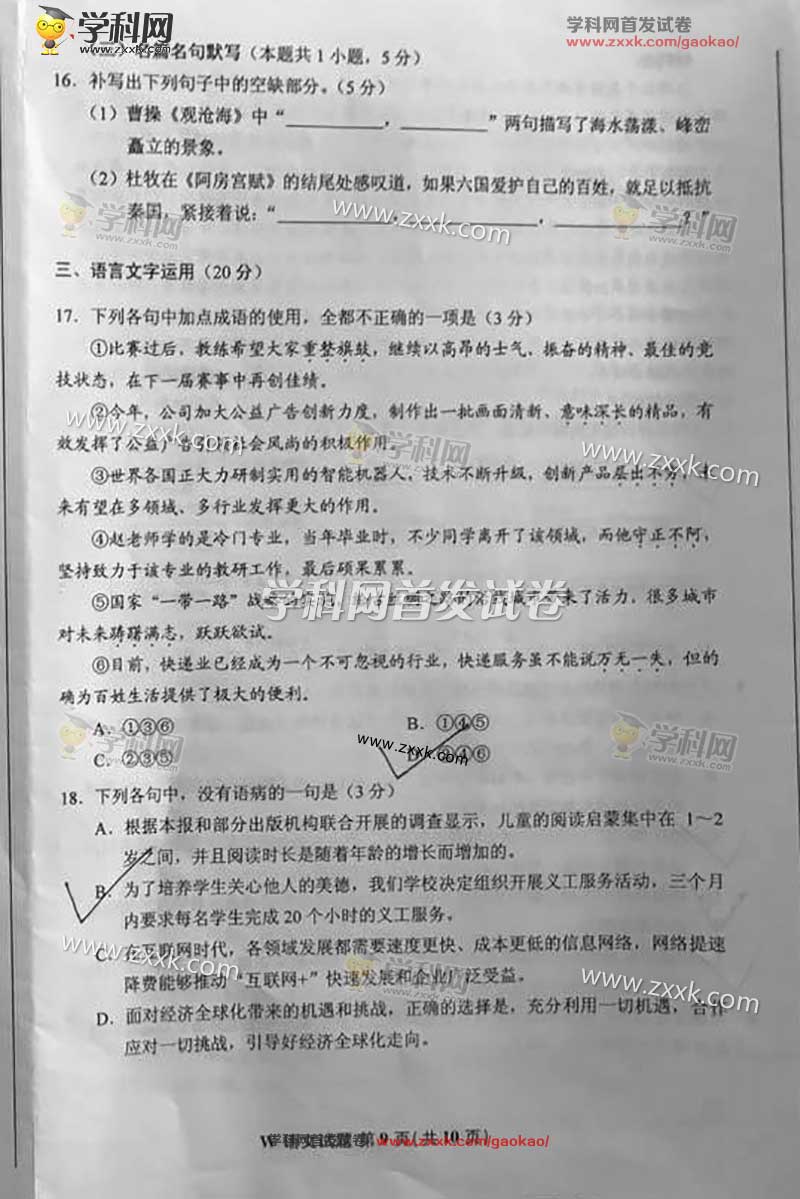 学科网
www.zxxk.com
学科网首发试卷
www.zxxk.com/gaokao/
名篇名句默写(本题共1小题,5分)
16. 补写出下列句子中的空缺部分。(5分)
(1)曹操《观沧海》中“__________,__________”两句描写了海水荡漾、峰峦
矗立的景象。
(2)杜牧在《阿房宫赋》的结尾处感叹道,如果六国爱护自己的百姓,就足以抵抗
秦国,紧接着说:“__________,__________,__________?”
学科网
www.zxxk.com
学科网
三、语言文字运用(20分)
17. 下列各句中加点成语的使用,全都不正确的一项是(3分)
①比赛过后,教练希望大家重整旗鼓,继续以高昂的士气、振奋的精神、最佳的竞
技状态,在下一届赛事中再创佳绩。
②今年,公司加大公益广告创新力度,制作出一批画面清新、意味深长的精品,有
效发挥了公益广告 社会风尚的积极作用。
www.zxxk.com
学科网
www.zxxk.com
③世界各国正大力研制实用的智能机器人,技术不断升级,创新产品层出不穷,未
来有望在多领域、多行业发挥更大的作用。
④赵老师学的是冷门专业,当年毕业时,不少同学离开了该领域,而他守正不阿,
坚持致力于该专业的教研工作,最后硕果累累。
学科网首发试卷
⑤国家“一带一路”战 城市 来了活力,很多城市
对未来踌躇满志,跃跃欲试。
⑥目前,快递业已经成为一个不可忽视的行业,快递服务虽不能说万无一失,但的
确为百姓生活提供了极大的便利。
A. ①③⑥ B. ①④⑤
C. ②③⑤ D. ②④⑥
学科网
www.zxxk.com
学科网
18. 下列各句中,没有语病的一句是(3分)
A. 根据本报和部分出版机构联合开展的调查显示,儿童的阅读启蒙集中在 1~2
岁之间,并且阅读时长是随着年龄的增长而增加的。
B. 为了培养学生关心他人的美德,我们学校决定组织开展义工服务活动,三个月
内要求每名学生完成 20 个小时的义工服务。
C. 在互联网时代,各领域发展都需要速度更快、成本更低的信息网络,网络提速
降费能够推动“互联网+”快速发展和企业广泛受益。
www.zxxk.com
学科网
www.zxxk.com
D. 面对经济全球化带来的机遇和挑战,正确的选择是,充分利用一切机遇,合作
应对一切挑战,引导好经济全球化走向。
语文试题 第9页(共10页)
学科网首发试卷 www.zxxk.com/gaokao/